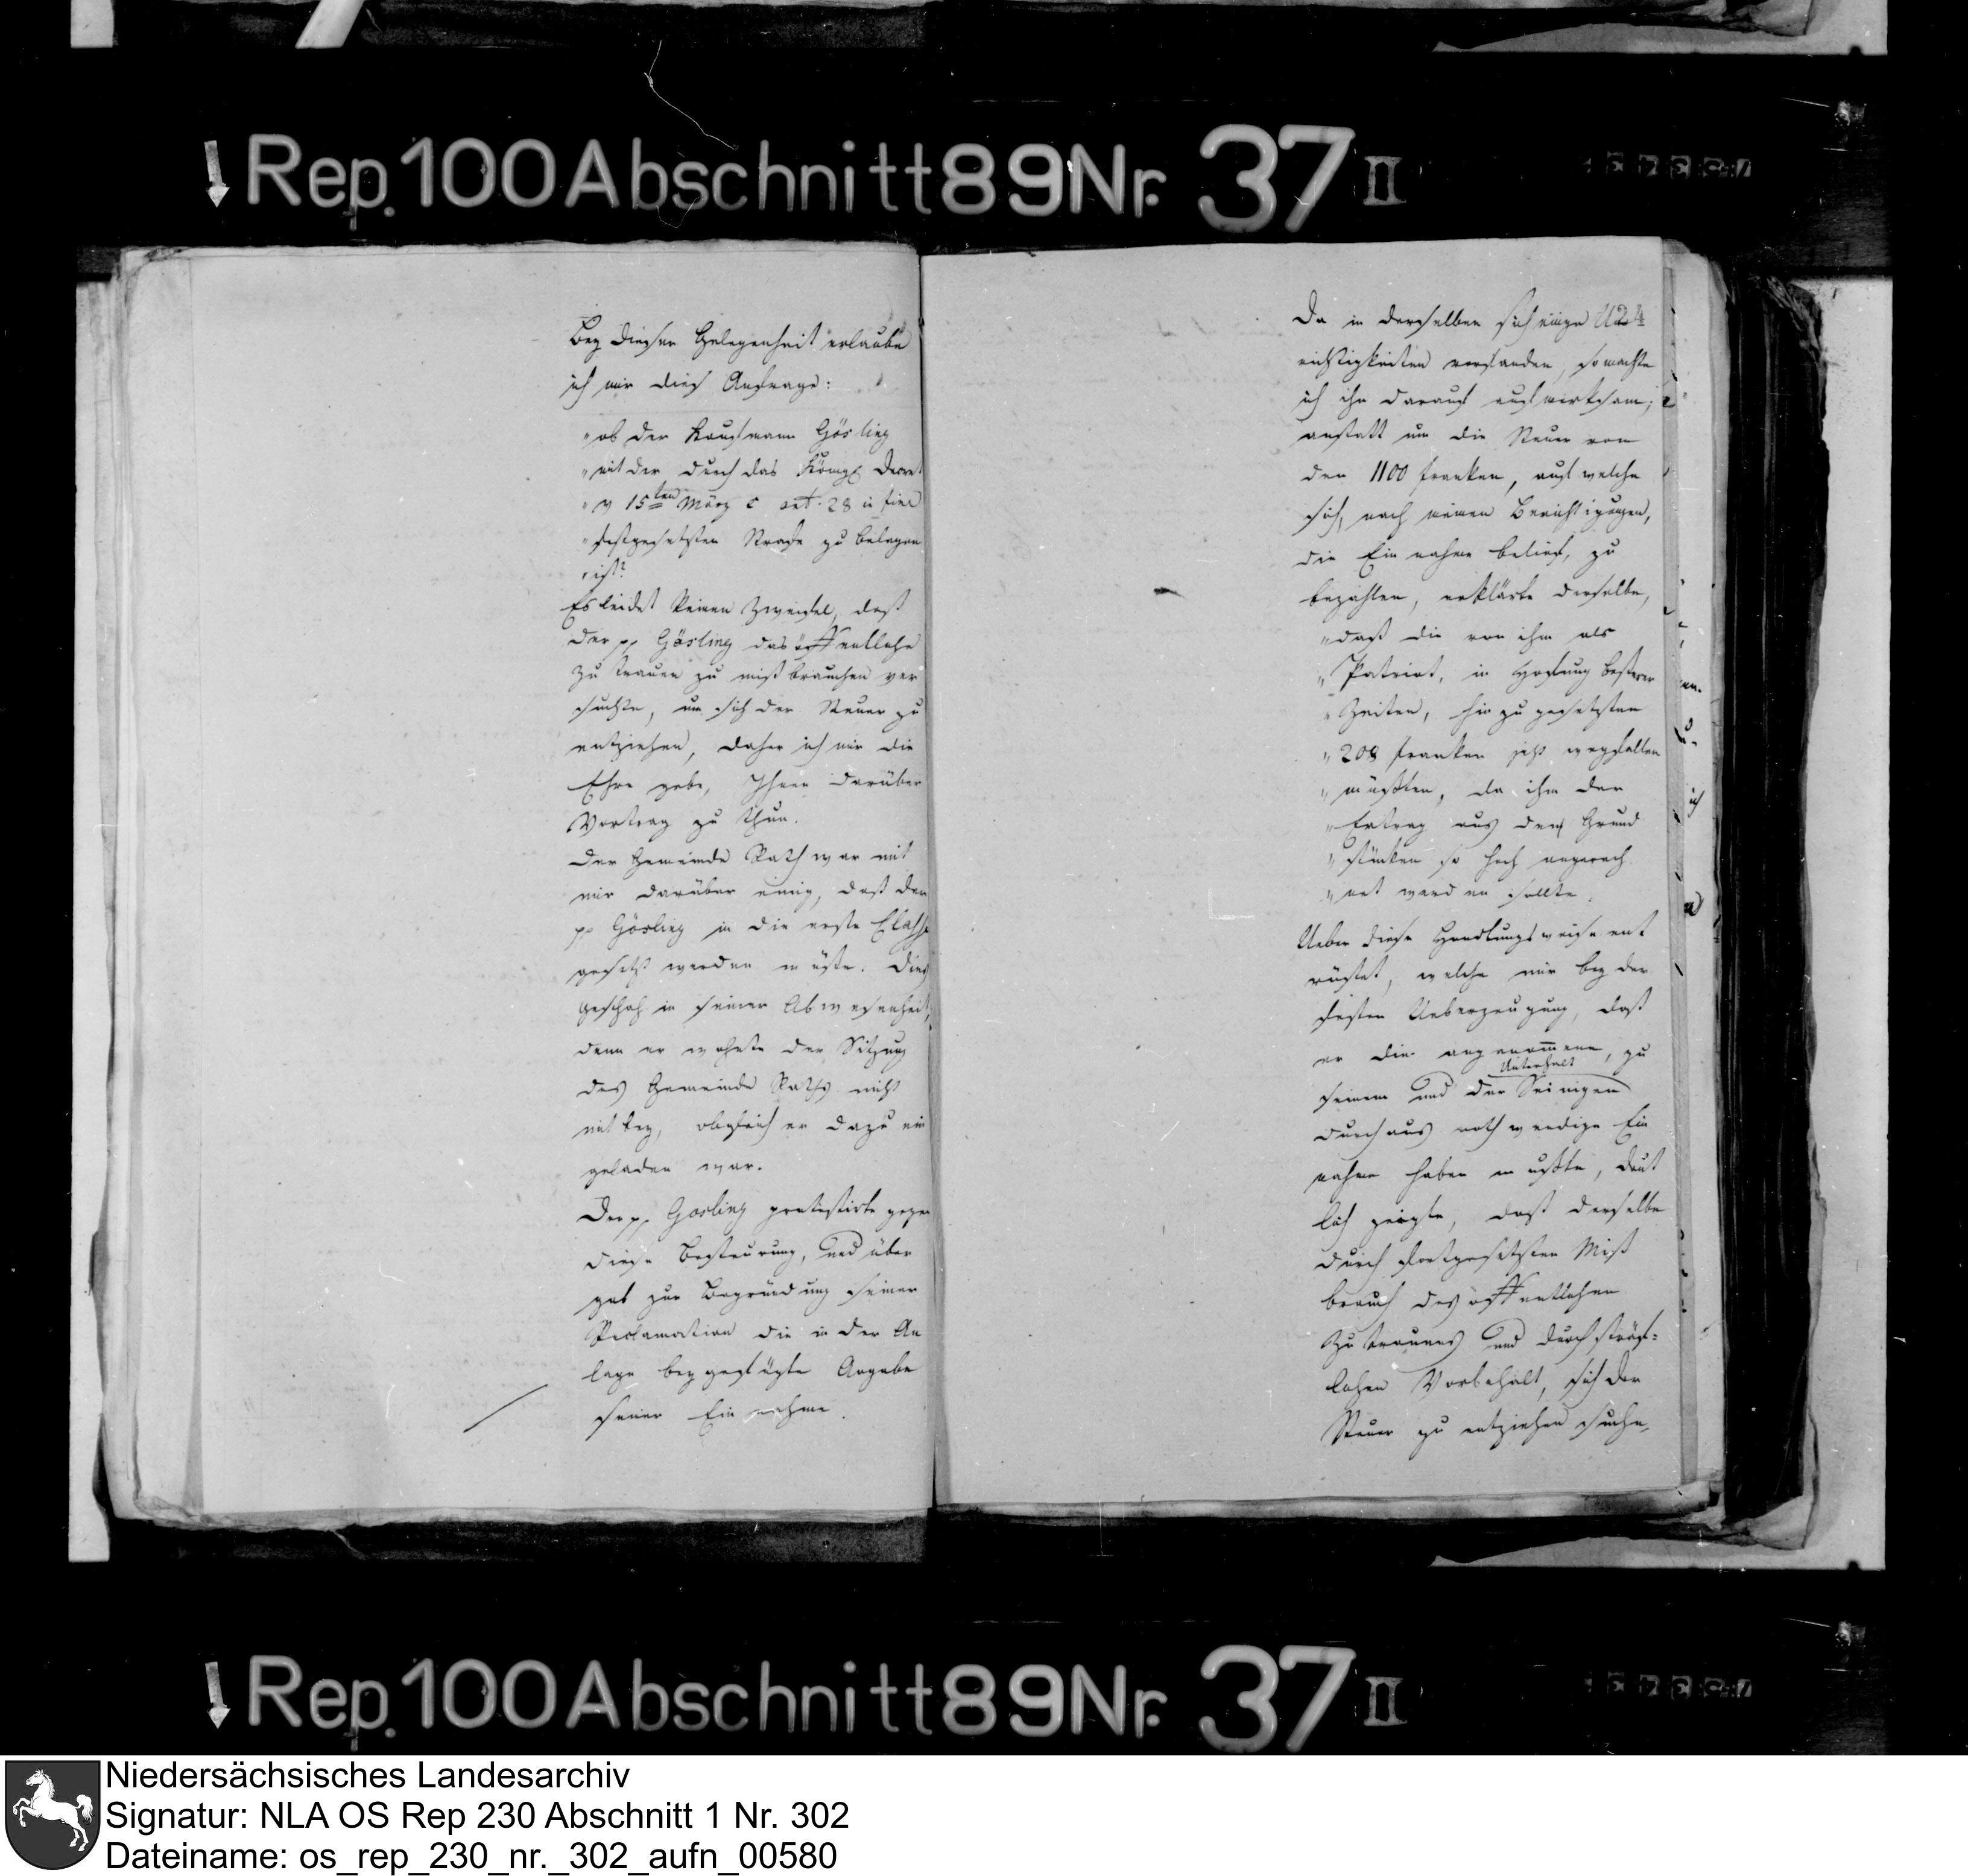 Rep. 100 Abschnitt 89 Nr. 37 II
Bey dieser Gelegenheit erlaube
ich mir dies Anfrage:
"ob der Kaufmann Gösling
"mit der durch das Königl Decret
"v 15ten März c art. 28 in fine
"festgesetzten Strafe zu belegen
"ist?
Es leidet keinen Zweifel, daß
der pp Gösling das öffentliche
Zutrauen zu mißbrauchen ver
suchte, um sich der Steuer zu
entziehen, daher ich mir die
Ehre gebe, Ihnen darüber
Vortrag zu thun.
Der Gemeinde Rath war mit
mir darüber einig, daß der
pp Gösling in die erste Classe
gesetzt werden müßte. Dies
geschah in seiner Abwesenheit,
denn er wohnte der Sitzung
des Gemeinde Raths nicht
mit bey, obgleich er dazu ein
geladen war.
Der pp Gösling protestirte gegen
diese Besteurung, und über
gab zur Begründung seiner
Reclamation die in der An
lage beygefügte Angabe
seiner Einnahme.
Da in derselben sich einige U24
richtigkeiten vorfanden, so machte
ich ihn darauf aufmerksam;
anstatt um die Steuer von
den 1100 franken, auf welche
sich, nach meinen Berichtigungen,
die Einnahme belief, zu
bezahlen, erklärte derselbe,
"daß die von ihm als
"Patriot, in Hofnung besserer
"Zeiten, hinzugesetzten
"208 franken jetzt wegfallen
"müßten, da ihm der
"Ertrag aus den Grund
"stücken so hoch angerech
"net werden sollte.
Ueber diese Handlungsweise ent
rüstet, welche mir bey der
festen Ueberzeugung, daß
er die angenommene, zu
seinem und der Seinigen Unterhalt
durchaus nothwendige Ein
nahme haben mußte, deut
lich zeigte, daß derselbe
durch fortgesetzten Miß
brauch des öffentlichen
Zutrauens und durch sträf-
lichen Vorbehalt, sich der
Steuer zu entziehen suche,
Rep. 100 Abschnitt 89 Nr. 37 II
Niedersächsisches Landesarchiv
Signatur: NLA OS Rep 230 Abschnitt 1 Nr. 302
Dateiname: os_rep_230_nr._302_aufn_00580